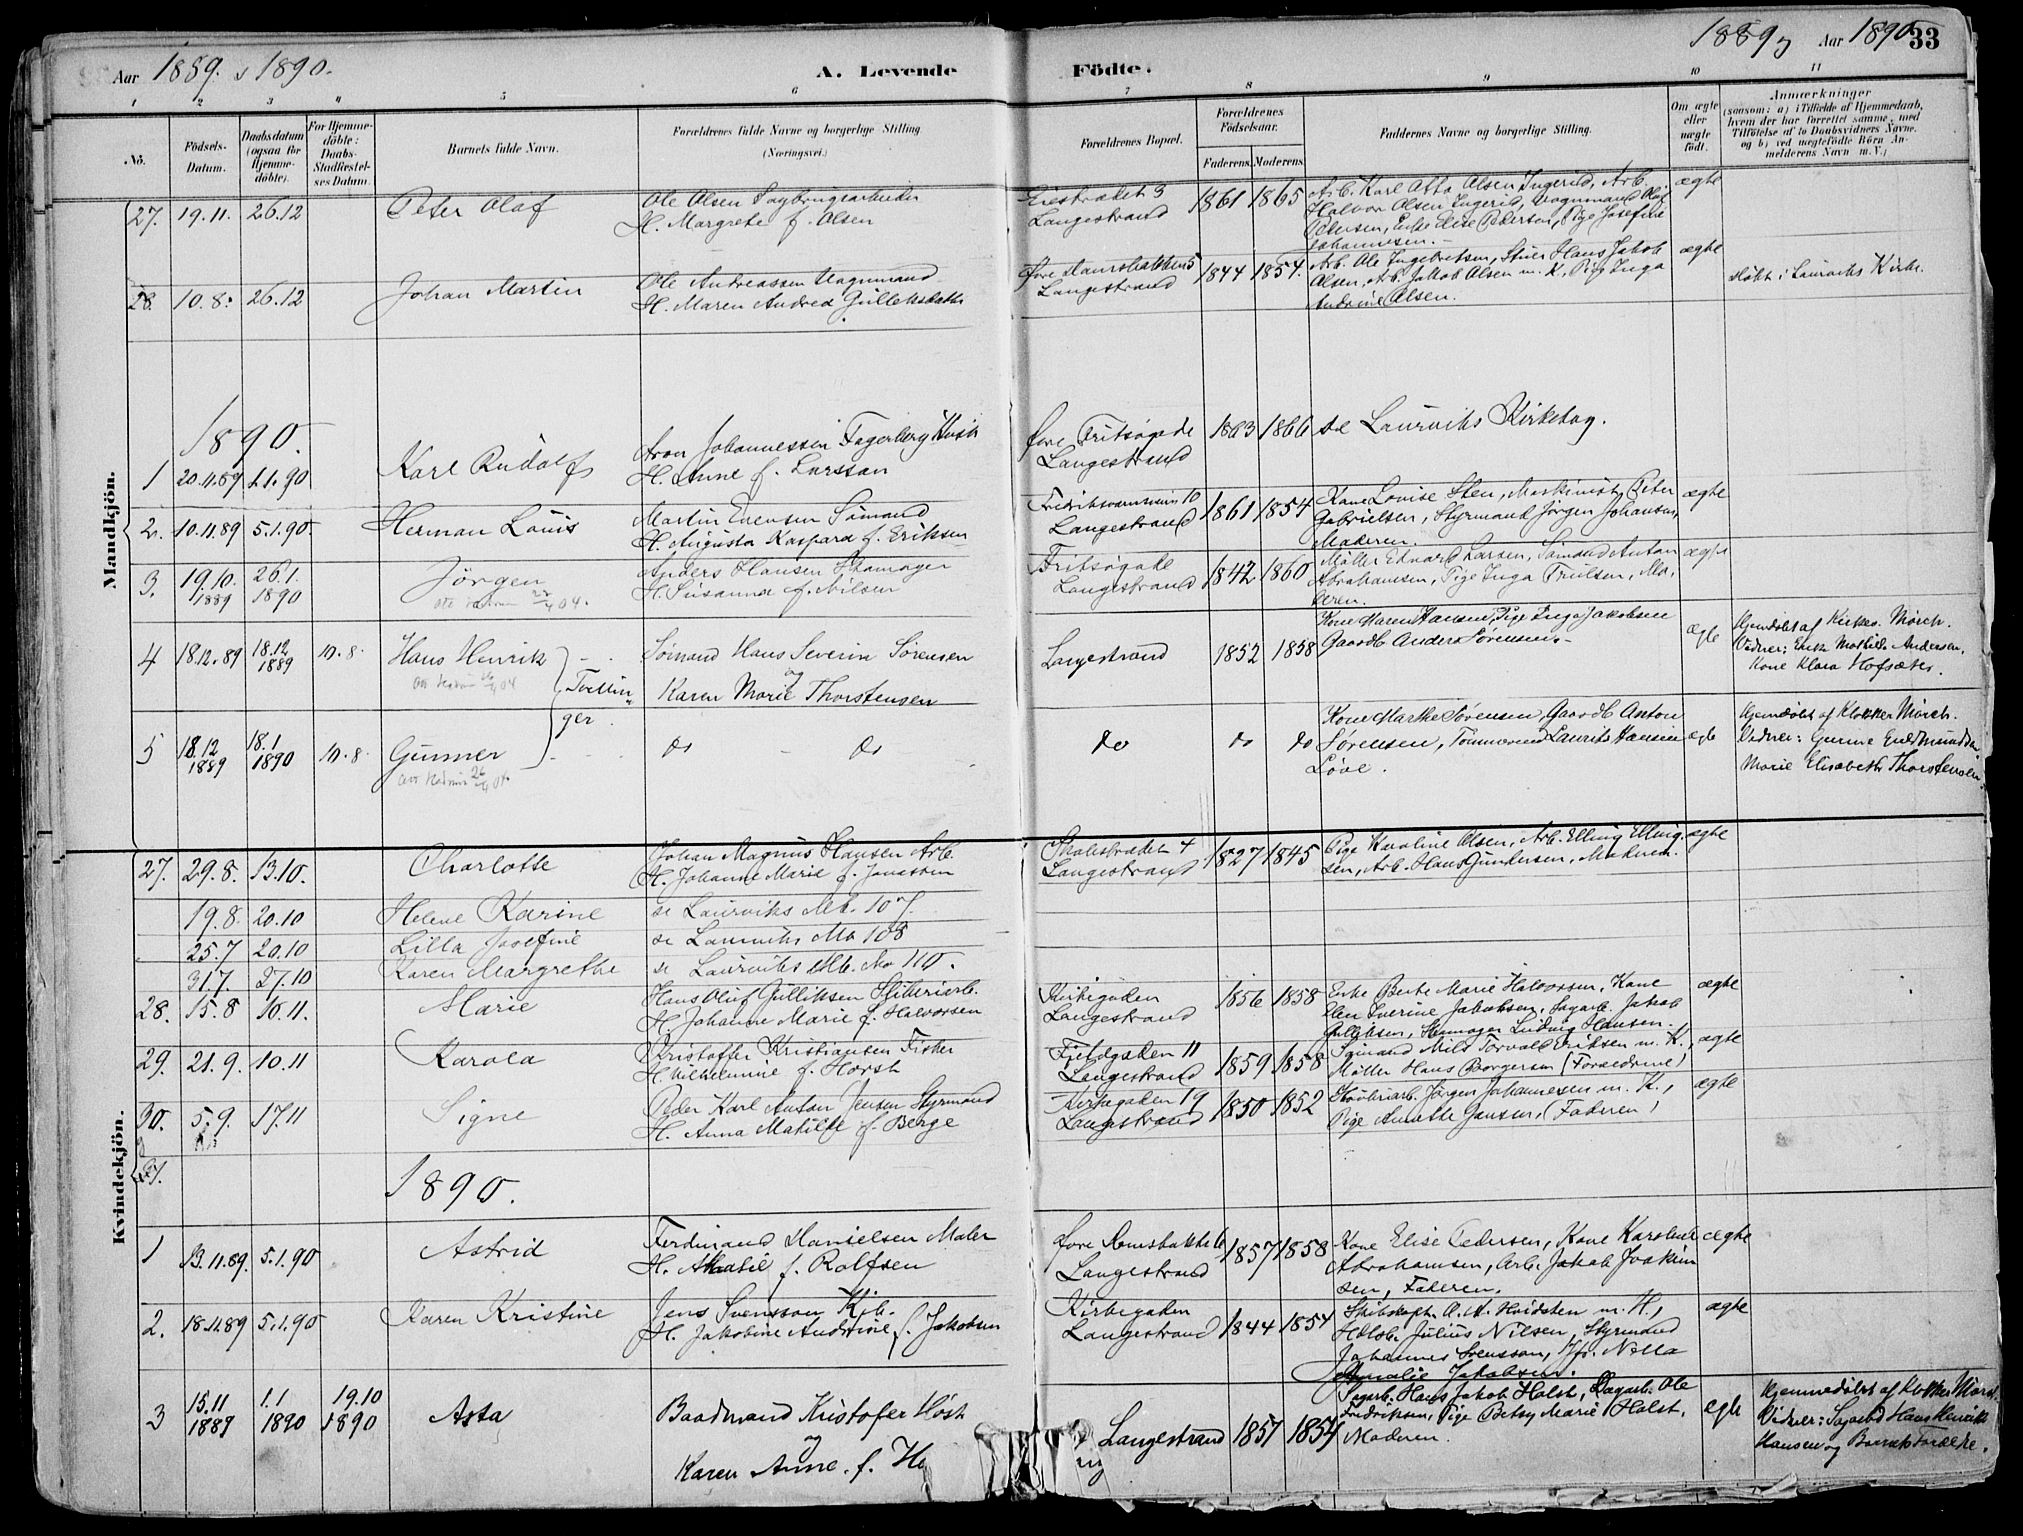 Aar 1889. & 1890.
A. Levende Födte.
1889 & Aar 1890
33
1 2 3 4 5 6 7 8 9 10 11
No.
Födsels-
Datum.
Daabsdatum
(ogsaa for
Hjemme-
döbte).
For Hjemme-
döbte:
Daabs-
Stadfæstel-
ses Datum.
Barnets fulde Navn.
Forældrenes fulde Navne og borgerlige Stilling
(Næringsvei.)
Forældrenes Bopæl.
Forældrenes
Födselsaar.
Faderens. Moderens.
Faddernes Navne og borgerlige Stilling.
Om ægte
eller
uægte
födt.
Anmærkninger
(saasom: a) i Tilfælde af Hjemmedaab,
hvem der har forrettet samme, med
Tilföielse af to Daabsvidners Navne.
og b) ved uægtefödte Börn An-
melderens Navn m. V.)
Mandkjön.
27. 19.11. 26.12 Peter Olaf
Ole Olsen Sagbrugsarbeider
H. Margrete f. Olsen
Langestrand
1861 1865
Arb. Karl Otto Olsen Ingerid, Arb.
Halvor Olsen Ingerid, Vognmand Olaf
Pedersen, Enke Else Pedersen, Pige Josefine
Johannesen.
ægte
28. 10.8. 26.12 Johan Martin
Ole Andreassen Vognmand
H. Maren Andrea Gulleksdatter
Langestrand
1844 1854.
Arb. Ole Ingebretsen, Stuer Hans Jakob
Olsen, Arb. Jakob Olsen m. K, Pige Inga
Andrine Olsen.
ægte
döbt i Laurviks Kirke.
1890.
1 20.11.89 1.1.90 Karl Rudolf
Aron Johannessen Fagerberg
H. Anne f. Larssan
övre Fritsøgade
Langestrand
1863 1866
se Laurviks Kirkebog.
2. 10.11.89 5.1.90. Herman Louis
Martin Evensen Sömand
H. Augusta Kaspara f. Eriksen
10
Langestrand
1861 1854
Kone Lovise Sten, Maskinist Peter
Gabrielsen, Styrmand Jörgen Johansen,
Moderen.
ægte
3. 19.10. 1889 26.1. 1890 Jörgen
Anders Hansen Skomager
H. Susanna f. Nilsen
Fritsögade
Langestrand
1842 1860
Möller Edvard Larsen, Sömand Anton
Abrahamsen, Pige Inga Trulsen, Mo-
deren.
ægte
4 18.12.89 18.12 1889 10.8. Hans Henrik
Sömand Hans Severin Sörensen
og
Karen Marie Thorstensen
Tvillin-
ger
Langestrand
1852 1858
Kone Maren Hansen, Pige Inga Jakobsen
Gaardb. Anders Sörensen.
ægte
Hjemdöbt af Kirkes. Mörch.
Vidner: Enke Mathilde Andersen,
Kone Klara Hofsæter.
5 18.12 1889 18.1 1890 10.8 Gunner
do - do
do
do do
Kone Marthe Sörensen, Gaardb. Anton
Sörensen, Tömmermand Laurits Hansen
Löve.
ægte
Hjemdöbt af Klokker Mörch.
Vidner: Gurine
Marie Elisabeth Thorstensen
Kvindekjön.
27. 29.8. 13.10. Charlotte
Johan Magnus Hansen Arb.
H. Johanne Marie f. Jonassen
4
Langestrand
1827 1845
Pige Karoline Olsen, Arb. Elling Elling-
sen, Arb. Hans Gundersen, Moderen.
ægte
19.8. 20.10 Helene Karine se Laurviks Mb. 107.
25.7 20.10 Lilla Josefine se Laurviks Mb 108
31.7. 27.10 Karen Margrethe se Laurviks Mb. No 110.
28. 15.8 10.11. Marie
Hans Oluf Gulliksen
H. Johanne Marie f. Halvorsen
Kirkegaden
Langestrand
1856 1858
Enke Berte Marie Halvorsen, Kone
Elen Severine Jakobsen, Sagarb. Jakob
Gulliksen, Skomager Ludvig Hansen.
ægte
29. 21.9. 10.11 Karola
Kristoffer Kristiansen Fisker
H. Vilhelmine f. Horst
Fjeldgaden 11
Langestrand
1859 1858
Sömand Nils Torvald Eriksen m. K.,
Möller Hans Borgersen (Forældrene)
ægte
30. 5.9. 17.11 Signe
Peder Karl Anton Jensen Styrmand
H. Anna Matilde f. Berge
Kirkegaden 19
Langestrand
1850 1852
Jörgen Johannesen m. K.,
Pige Anette Jansen, (Faderen)
ægte
1890.
1 13.11.89. 5.1.90 Astrid
Ferdinand Danielsen Maler
H. f. Rolfsen
övre
Langestrand
1857 1858
Kone Elise Pedersen, Kone Karoline
Abrahamsen, Arb. Jakob Joakim-
sen, Faderen.
ægte
2. 18.11.89 5.1.90 Karen Kristine
Jens Svensson
H. Jakobine Andrine f. Jakobsen
Kirkegaden
Langestrand
1844 1854
Skibskapt. A. M. Hvidsten m. H.,
Julius Nilsen, Styrmand
Johannes Svensson, Jfr. Nella
Amalie Jakobsen.
ægte
3 15.11 1889 1.1 1890 19.10 1890 Asta
Baadmand Kristofer Höst
og
Karen Anne. f. He
Langestrand
1857 1854
Sagarb. Hans Jakob Holst, Sagarb. Ole
Fredriksen, Pige Betsy Marie Holst,
Moderen.
ægte
Hjemmedöbt af Klokker Mörch.
Vidner: Hans Henrik
Hansen og Barnets Forældre.